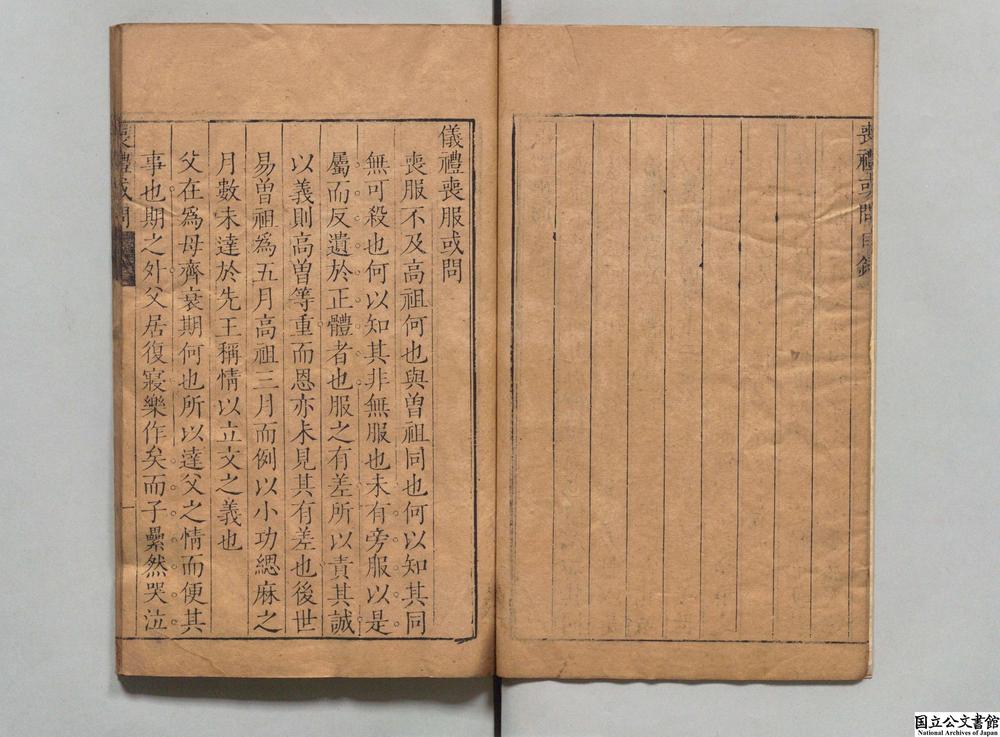 喪禮或問目錄
儀禮喪服或問
喪服不及高祖何也與曾祖同也何以知其同
無可殺也何以知其非無服也未有旁服以是
屬而反遺於正體者也服之有差所以責其誠
以義則高曾等重而恩亦未見其有差也後世
易曾祖為五月高祖三月而例以小功緦麻之
月數未達於先王稱情以立文之義也
父在為母齊衰期何也所以達父之情而便其
事也期之外父居復寢樂作矣而子纍然哭泣
喪禮或問
一
国立公文書館
National Archives of Japan